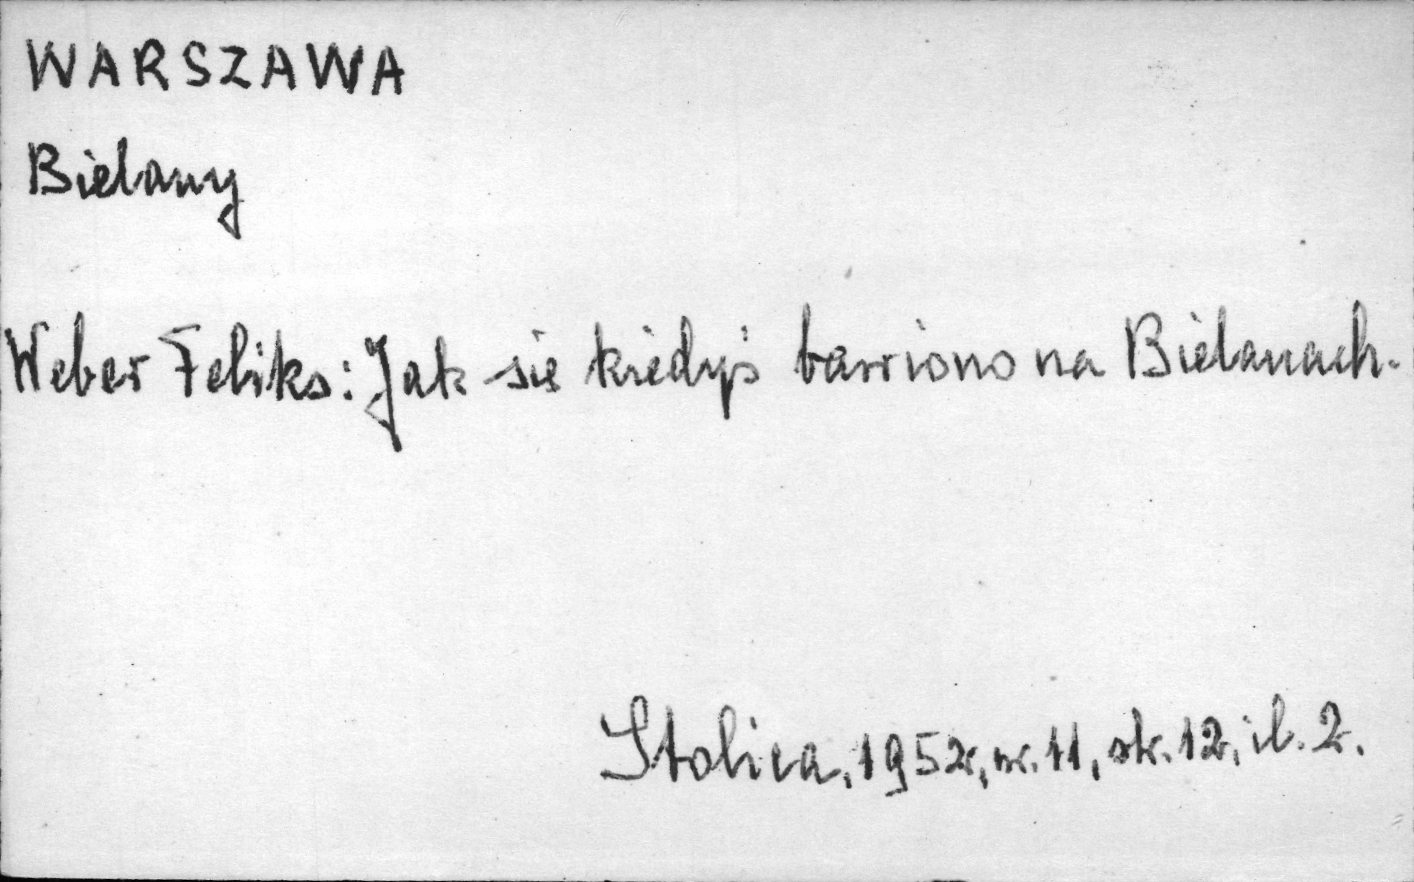 WARSZAWA
Bielany
Weber Feliks: Jak się kiedyś bawiono na Bielanach.
Stolica, 1952, nr. 11, str. 12, il. 2.